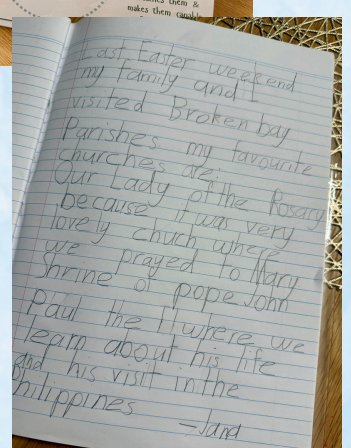 makes them capabl
Last Easter weekend
my family and I
visited Broken bay
Parishes my favourite
churches are:
Our Lady of the Rosary
because it was very
lovely chuch where
we prayed to Mary
Shrine of pope John
Paul the II where we
learn about his life
and his visit in the
Philippines
—Jana